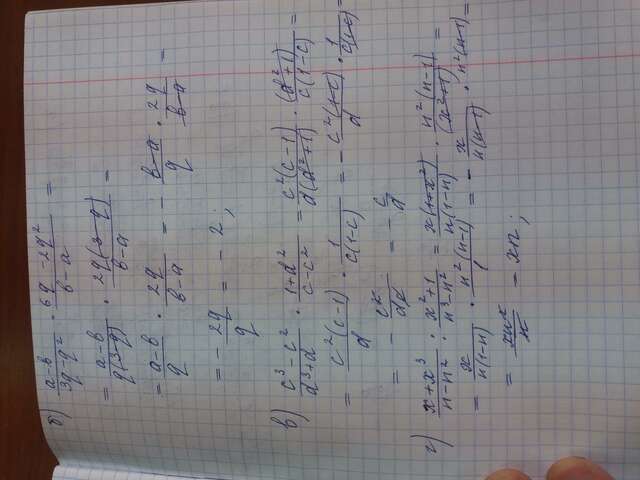 б) (a-b)/(3q-q²) · (6q-2q²)/(b-a) =
= (a-b)/(q(3-q)) · (2q(3-q))/(b-a) =
= (a-b)/q · 2q/(b-a) = - (b-a)/q · 2q/(b-a) =
= - 2q/q = - 2;
в) (c³-c²)/(d³+d) · (1+d²)/(c-c²) = (c²(c-1))/(d(d²+1)) · (d²+1)/(c(1-c)) =
= (c²(c-1))/d · 1/(c(1-c)) = - (c²(1-c))/d · 1/(c(1-c)) =
= - c²/dc = - c/d
г) (x+x³)/(n-n²) · (x²+1)/(n³-n²) = (x(1+x²))/(n(1-n)) · (n²(n-1))/(x²+1) =
= x/(n(1-n)) · (n²(n-1))/1 = - x/(n(n-1)) · n²(n-1) =
= xn²/n = xn;